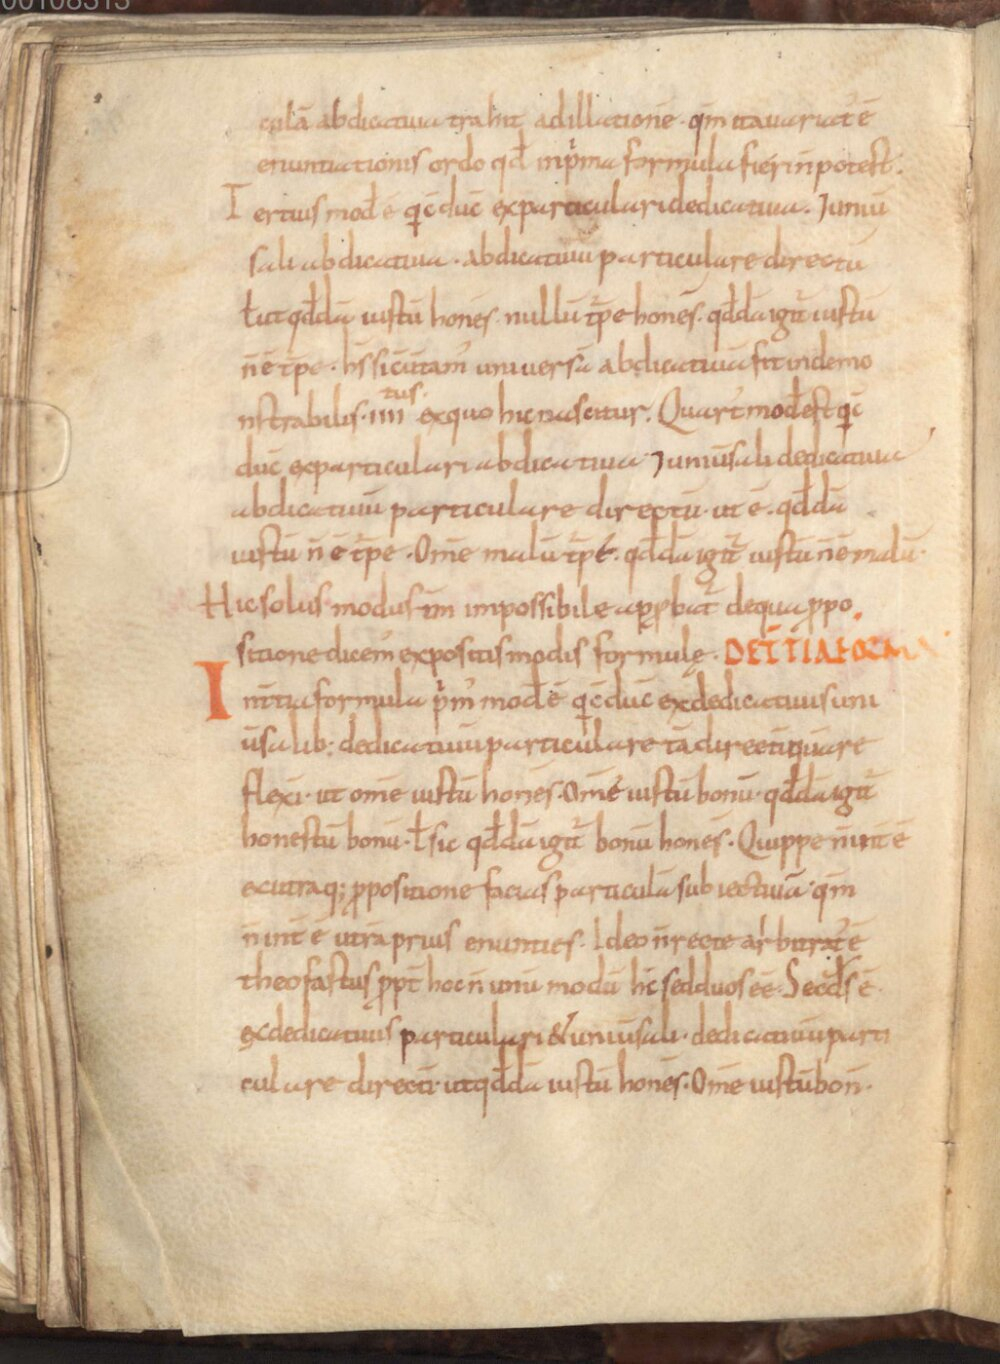 00108313
culā abdicatiua trahit ad illationē · qm̄ ita uariat' ē
enuntiationis ordo qđ in p̄ma formula fieri n̄ potest .
Tertius mođ ē qi c̄duc̄ ex particulari dedicatiua · ⁊ uniū
sali abdicatiua · abdicatiuū particulare directū
ł ut qđdā iustū hones̄ · nullū t̄pe hones̄ · qđdā igit̄ iustū
n̄ ē t̄pe · hs̄ sicut am̄ uniuersa abdicatiua fit indemo
nstrabilis · iiii tus· ex quo hic nascitur · Quart' mođ est qi c̄
duc̄ ex particulari abdicatiua ⁊ uniūsali dedicatiua
abdicatiuū particulare directū · ut ē · qđdā
iustū n̄ ē t̄pe · Om̄e malū t̄pe · qđdā igit̄ iustū n̄ ē malū ·
Hic solus modus ꝑ impossibile app̱bat̄ de qua ꝓpo
sitione dicem' expositis modis formulę · DE T̄TIA FORM
IN t̄tia formula p̄m' mođ ē qi c̄duc̄ ex dedicatiuis uni
ūsalib; dedicatiuū particulare tā directi quā re
flexi · ut om̄e iustū hones̄ · Om̄e iustū bonū · qđdā igit̄
honestū bonū · ł sic qđdā igit̄ bonū hones̄ · Quippe n̄ int̄ ē
ex utraq; ꝓpositione facias particulā subiectiuā · qm̄
n̄ int̄ ē utrā prius enunties · Ideo n̄ recte arbitrat' ē
theofastus ꝓpt̄ hoc n̄ unū modū hc̄ sed duos eē · Secđs ē ·
ex dedicatiuis particulari & uniūsali · dedicatiuū parti
culare directi · ut qđdā iustū hones̄ · Om̄e iustū bon̄ ·